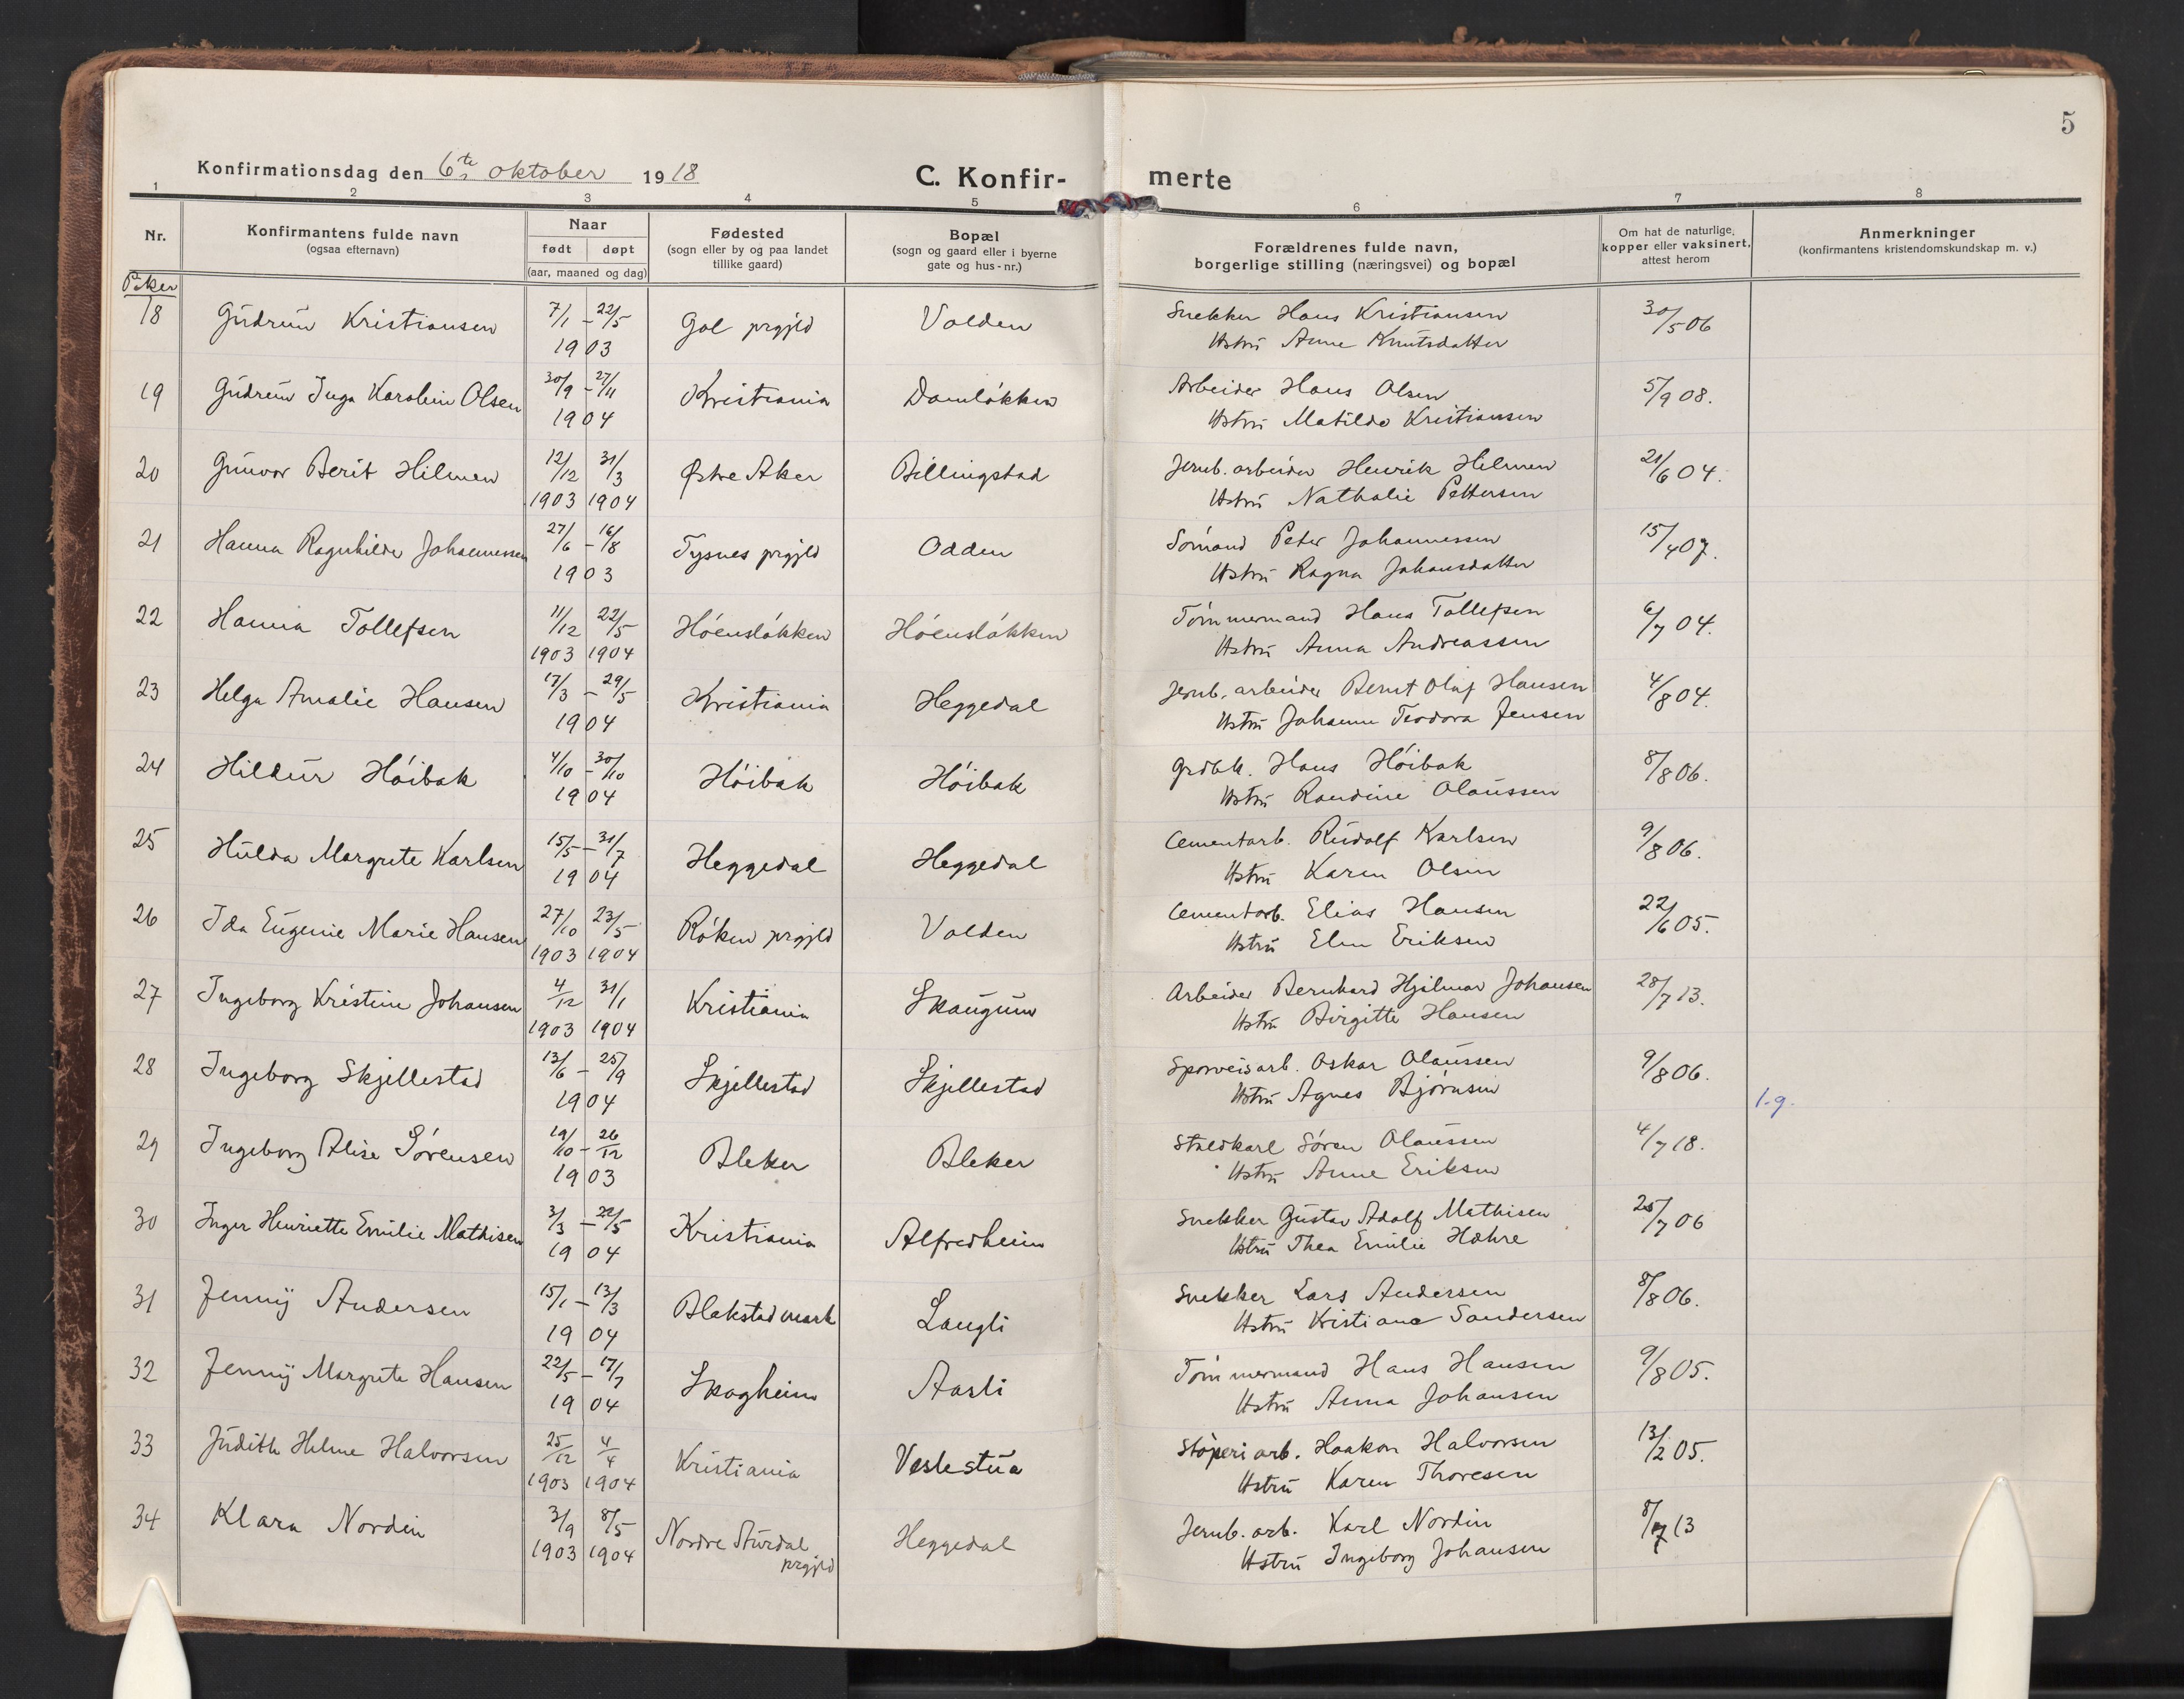 5
Konfirmationsdag den 6te oktober 1918
C. Konfir- merte
1 2 3 4 5 6 7 8
Nr.
Konfirmantens fulde navn
(ogsaa efternavn)
Naar
født døpt
(aar, maaned og dag)
Fødested
(sogn eller by og paa landet
tillike gaard)
Bopæl
(sogn og gaard eller i byerne
gate og hus-nr.)
Forældrenes fulde navn,
borgerlige stilling (næringsvei) og bopæl
Om hat de naturlige,
kopper eller vaksinert,
attest herom
Anmerkninger
(konfirmantens kristendomskundskap m. v.)
Piker
18 Gudrun Kristiansen 7/1 – 22/5 Gol prgjld Volden Snekker Hans Kristiansen 30/5 06
1903 Hstru Anne Knutsdatter
19 Gudrun Inga Karolin Olsen 30/9 – 27/11 Kristiania Damløkken Arbeider Hans Olsen 5/9 08.
1904 Hstru Matilde Kristiansen
20 Gunvor Berit Hilmen 12/12 31/3 Østre Aker Billingstad Jernb. arbeider Henrik Hilmen 21/6 04.
1903 1904 Hstru Nathalie Pettersen
21 Hanna Ragnhilda Johannessen 27/6 – 16/8 Tysnes prgjld Odden Sømand Peter Johannessen 15/4 07.
1903 Hstru Ragna Johansdatter
22 Hanna Tollefsen 11/12 22/5 Høensløkken Høensløkken Tømmermand Hans Tollefsen 6/7 04.
1903 1904 Hstru Anna Andreassen
23 Helga Amalie Hansen 17/3 – 29/5 Kristiania Heggedal Jernb. arbeider Bernt Olaf Hansen 4/8 04.
1904 Hstru Johanne Teodora Jensen
24 Hildur Høibak 4/10 – 30/10 Høibak Høibak Grdbk. Hans Høibak 8/8 06.
1904 Hstru Randine Olaussen
25 Hulda Margrete Karlsen 15/5 – 31/7 Heggedal Heggedal Cementarb. Rudolf Karlsen 9/8 06.
1904 Hstru Karen Olsen
26 Ida Eugenie Marie Hansen 27/10 23/5 Røken prgjld Volden Cementarb. Elias Hansen 22/6 05.
1903 1904 Hstru Elen Eriksen
27 Ingeborg Kristine Johansen 4/12 31/1 Kristiania Skaugum Arbeider Bernhard Hjalmar Johansen 28/7 13.
1903 1904 Hstru Birgitte Hansen
28 Ingeborg Skjellestad 13/6 – 25/9 Skjellestad Skjellestad Sporveisarb. Oskar Olaussen 9/8 06.
1904 Hstru Agnes Bjørnsen 1.g.
29 Ingeborg Alise Sørensen 19/10 – 26/12 Bleker Bleker Staldkarl Søren Olaussen 4/7 18.
1903 Hstru Anne Eriksen
30 Inger Henriette Emilie Mathisen 3/3 – 22/5 Kristiania Alfredheim Snekker Gustav Adolf Mathisen 25/7 06
1904 Hstru Thea Emilie Hæhre
31 Jenny Andersen 15/1 – 13/3 Blakstadmark Langli Snekker Lars Andersen 8/8 06.
1904 Hstru Kristiane Sandersen
32 Jenny Margrete Hansen 22/5 – 17/7 Skogheim Aasli Tømmermand Hans Hansen 9/8 05.
1904 Hstru Anna Johansen
33 Judith Helene Halvorsen 25/12 4/4 Kristiania Veslestua Støperiarb. Haakon Halvorsen 13/2 05.
1903 1904 Hstru Karen Thoresen
34 Klara Nordin 3/9 8/5 Nordre Aurdal Heggedal Jernb. arb. Karl Nordin 8/7 13
1903 1904 prgjld Hstru Ingeborg Johansen